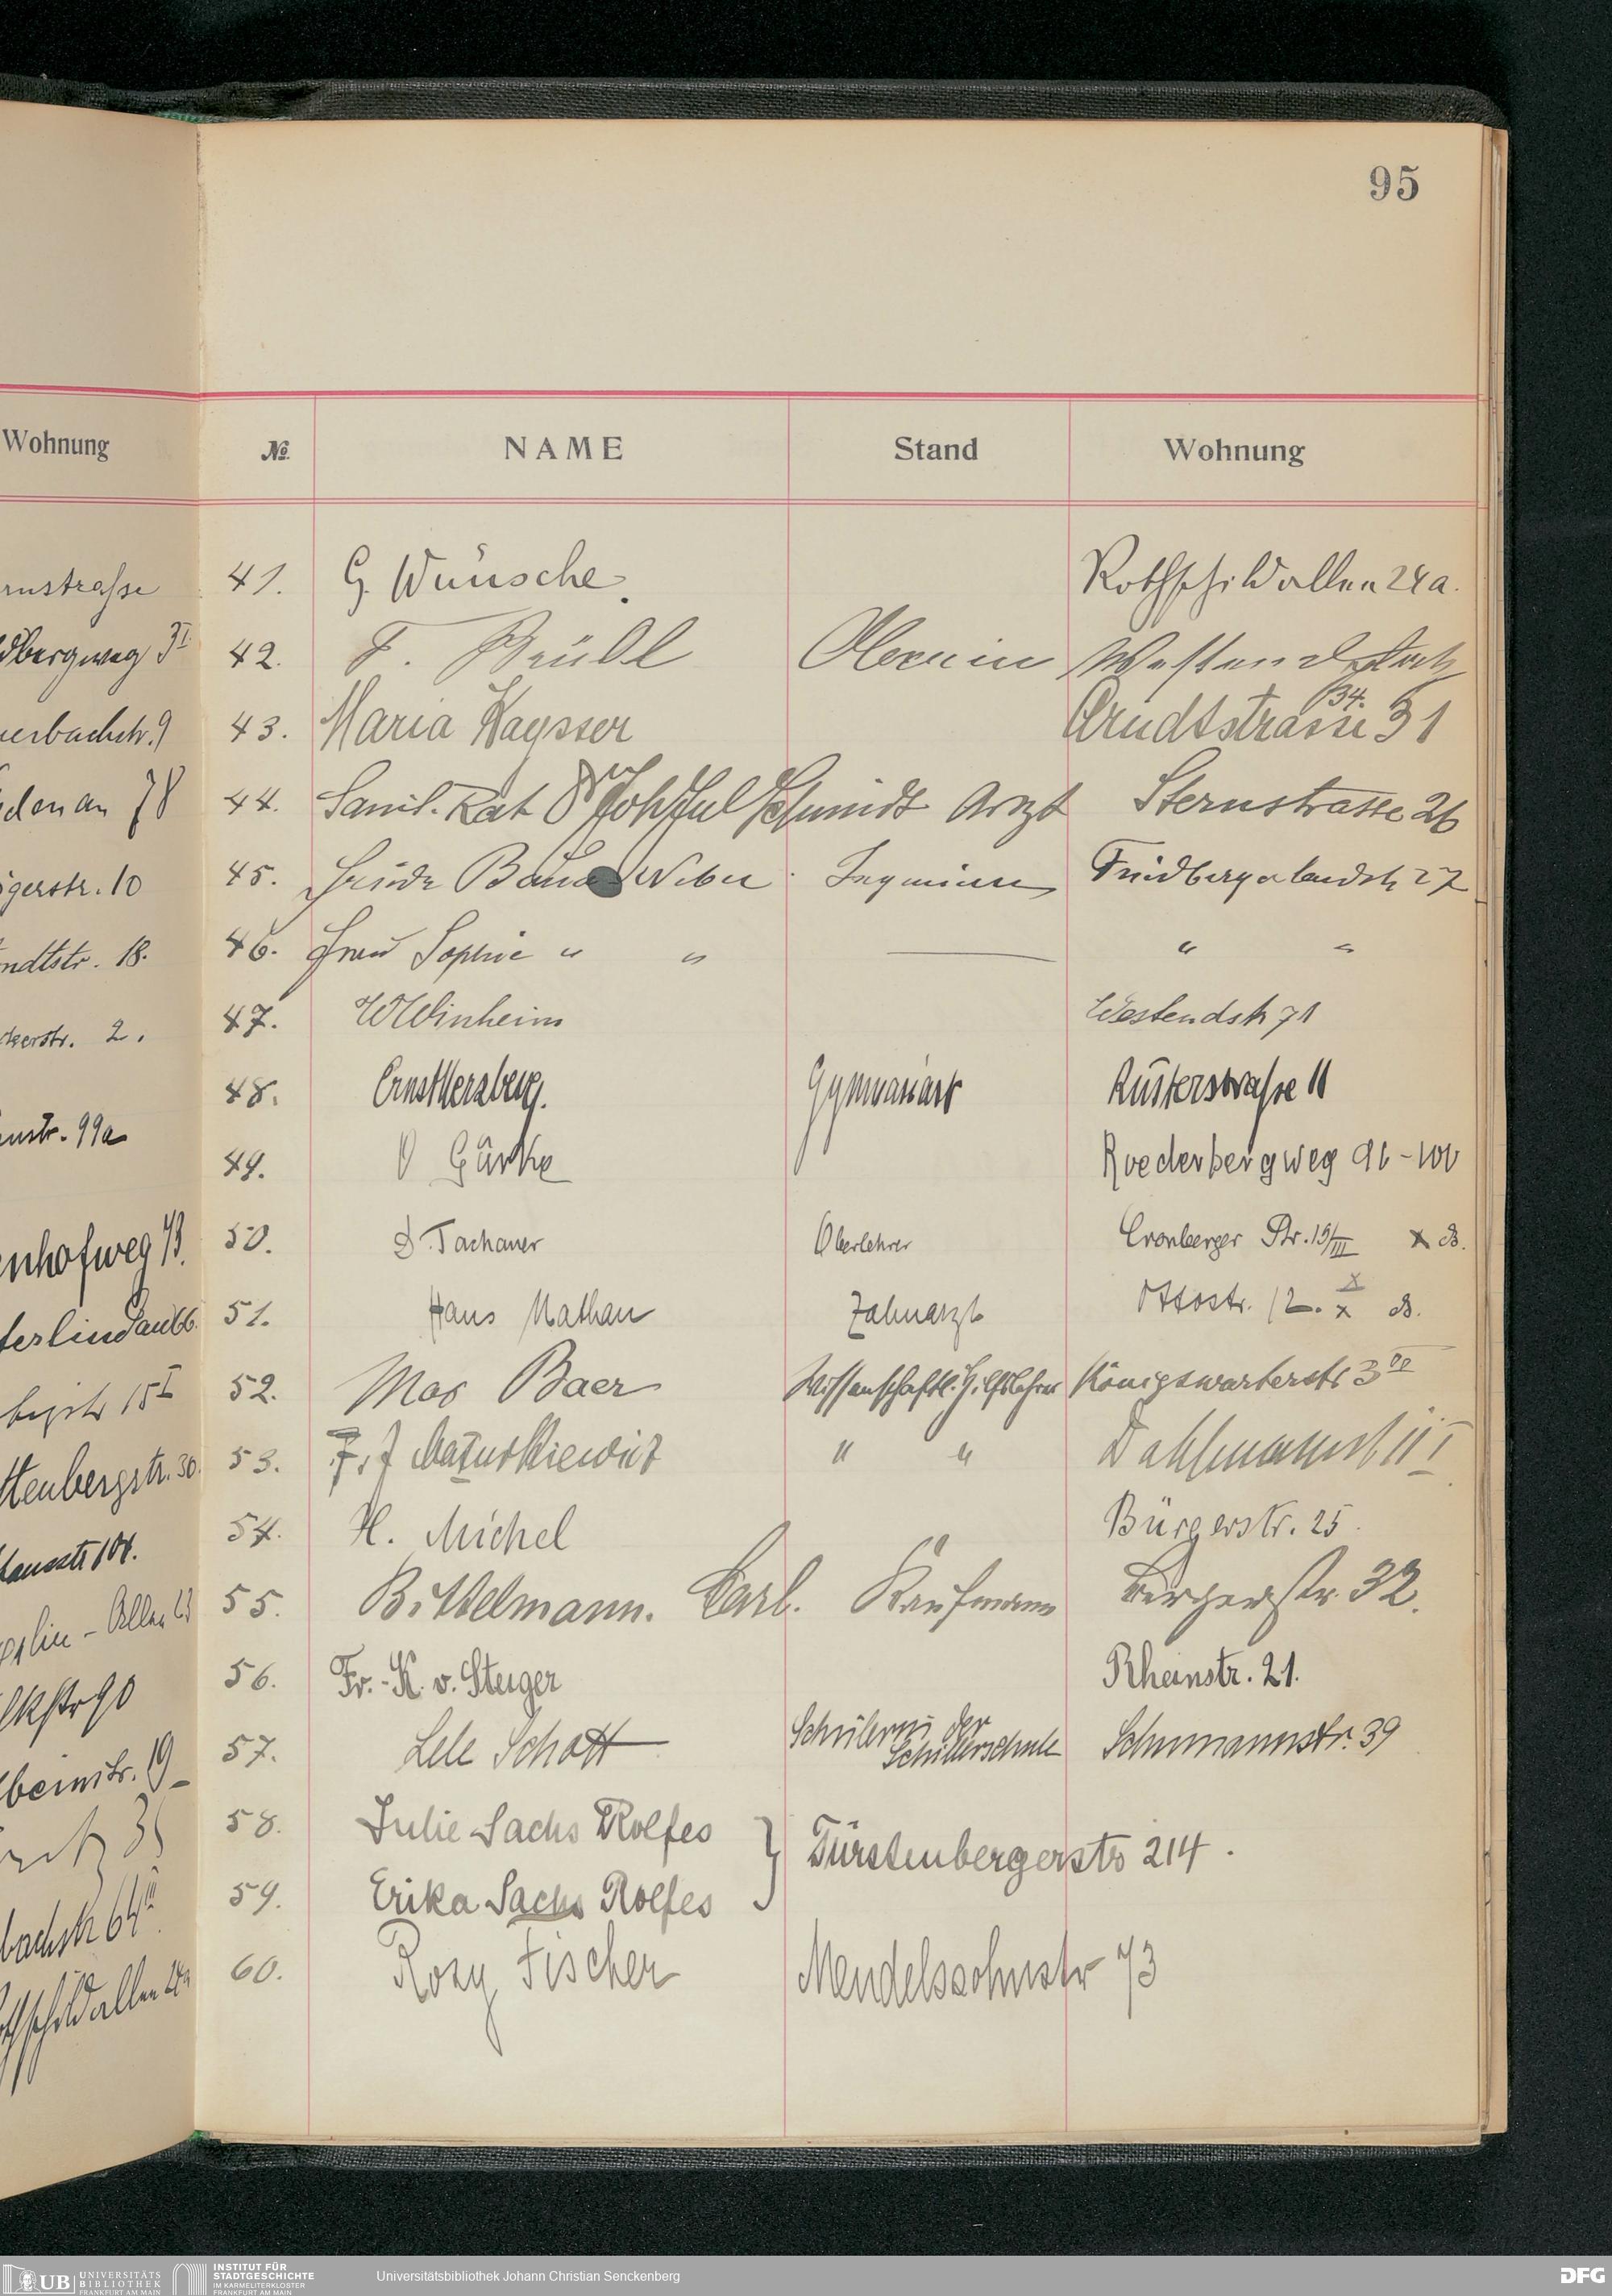 95
Wohnung
№ NAME Stand Wohnung
rnstraße
dbergweg 3 I
uerbachstr. 9
den an 78
gerstr. 10
ndtstr. 18.
kerstr. 2.
nstr. 99a
nhofweg 13.
terlindau 66.
15 I
ttenbergstr. 30.
101.
Allee 23
lkstr 90
beinstr. 19
35
bachstr 64 III
thschildallee 24a
41. G. Wünsche. Rothschildallee 24a.
42. F. Oberin Westendplatz
34.
43. Maria Kaysser Arndtstrasse 31
44. Sanit.-Rat Dr Schmidt Arzt Sternstrasse 26
45. Weber Ingenieur Friedbergerlandstr 27
46. Frau Sophie " " — " "
47. W Weinheim Westendstr 71
48. Ernst Herzberg. Gymnasiast Küsterstraße 11
49. O Gärke Roederbergweg 96-100
50. J. Tachauer Oberlehrer Cronberger Str. 19/III x B.
51. Hans Nathan Zahnarzt Ottostr. 12. x x B.
52. Max Baer Wissenschaftl. Hilfslehrer Königswarterstr 3
53. F. J Maturkiewicz " " Dahlmannstr 11 I
54. H. Michel Bürgerstr. 25.
55. Bittelmann. Carl. Kaufmann Bürgerstr. 32.
56. Fr.-K. v. Steiger Rheinstr. 21.
57. Lele Schott Schülerin der Schillerschule Schumannstr. 39
58. Julie Sachs Rolfes } Fürstenbergerstr 214.
59. Erika Sachs Rolfes
60. Rosy Fischer Mendelssohnstr 73
UB UNIVERSITÄTS
BIBLIOTHEK
FRANKFURT AM MAIN
INSTITUT FÜR
STADTGESCHICHTE
IM KARMELITERKLOSTER
FRANKFURT AM MAIN
Universitätsbibliothek Johann Christian Senckenberg
DFG